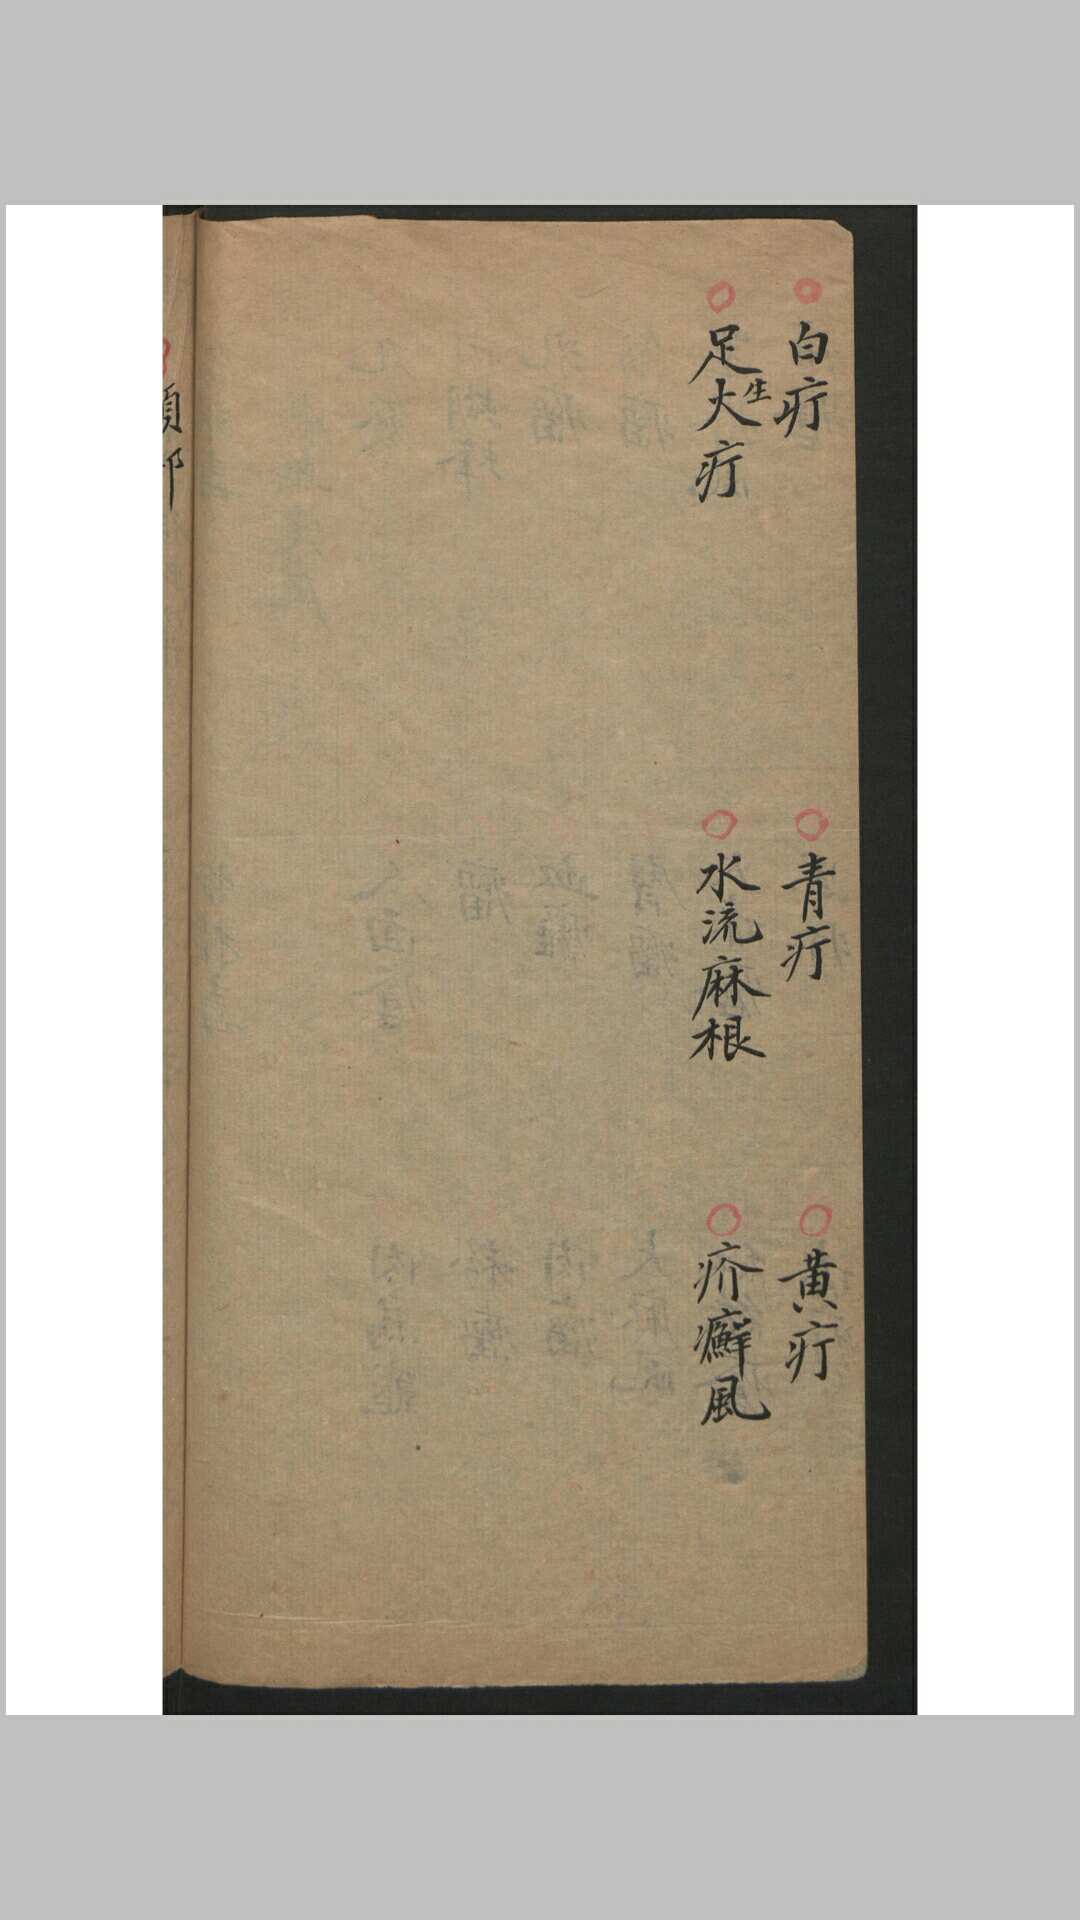 白疔
青疔
黄疔
足生火疔
水流麻根
疥癬風